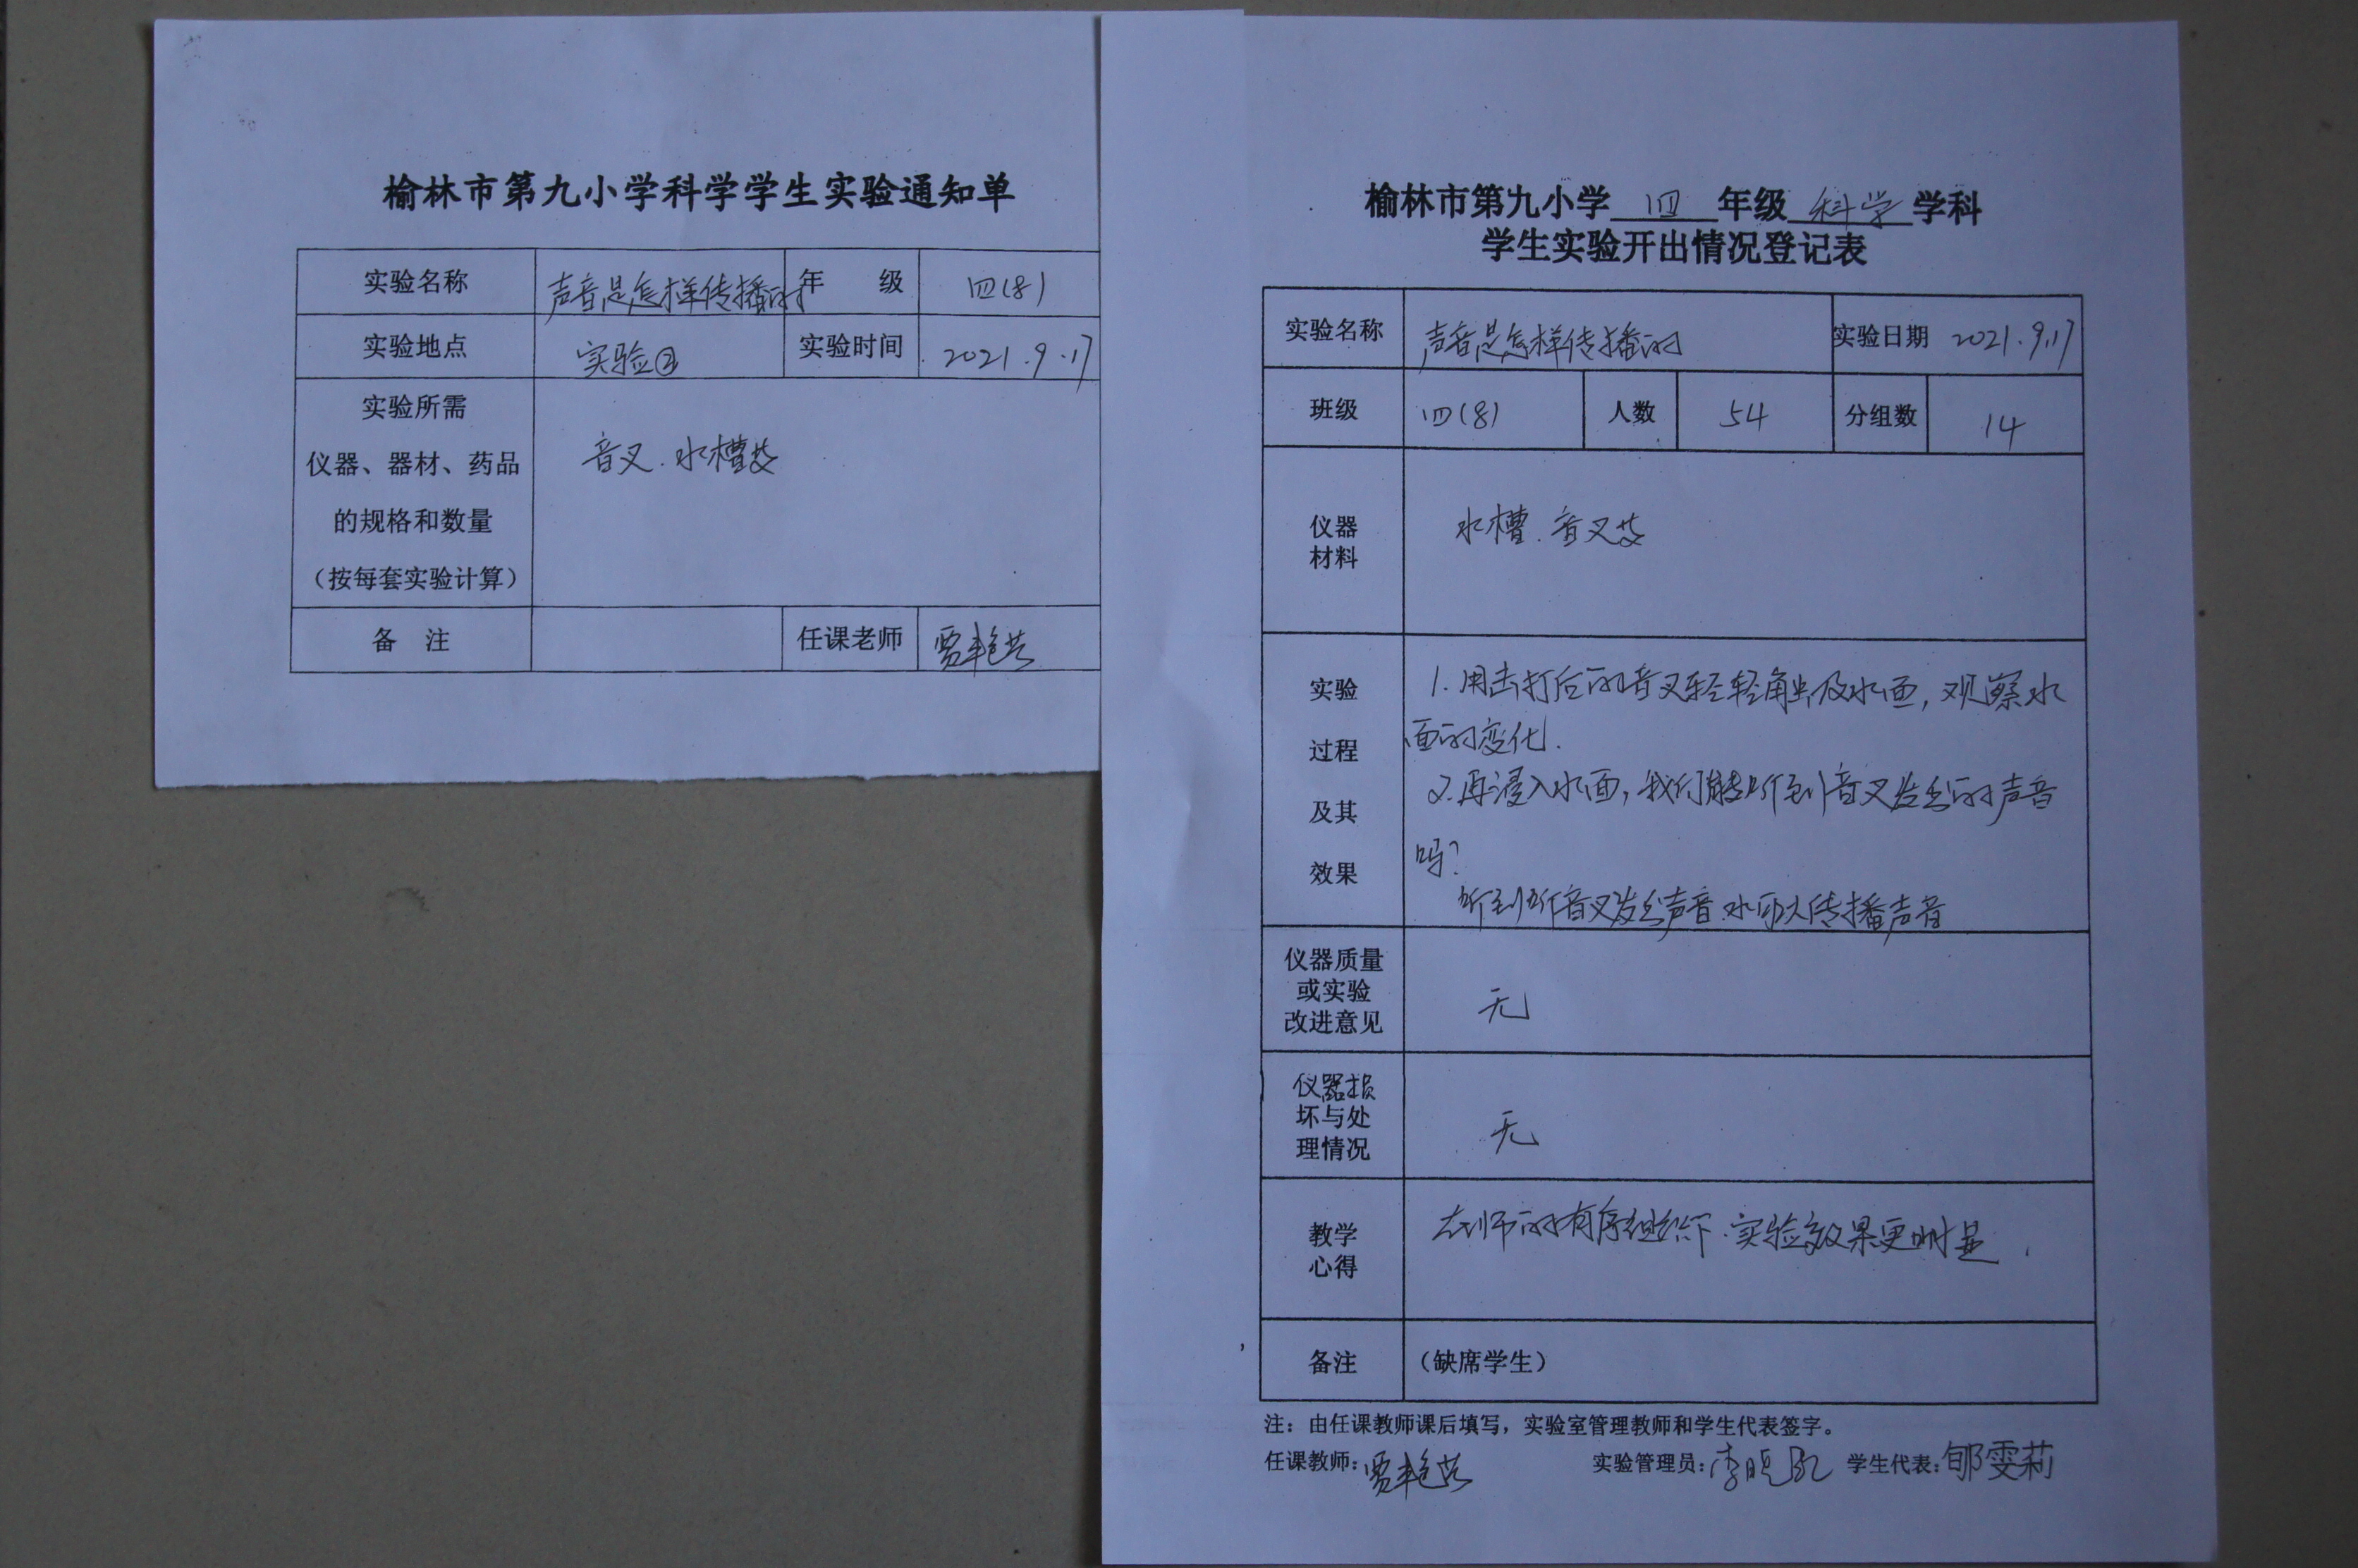 榆林市第九小学科学学生实验通知单
实验名称 声音是怎样传播的 年 级 四(8)
实验地点 实验② 实验时间 2021.9.17
实验所需
仪器、器材、药品
的规格和数量
(按每套实验计算)
音叉.水槽等
备 注 任课老师 贾艳芸
榆林市第九小学 四 年级 科学 学科
学生实验开出情况登记表
实验名称 声音是怎样传播的 实验日期 2021.9.17
班级 四(8) 人数 54 分组数 14
仪器
材料
水槽.音叉等
实验
过程
及其
效果
1.用击打后的音叉轻轻触及水面,观察水
面的变化.
2.再浸入水面,我们能听到音叉发出的声音
吗?
听到音叉发出声音.水可以传播声音
仪器质量
或实验
改进意见
无
仪器损
坏与处
理情况
无
教学
心得
在师的有序组织下.实验效果更明显.
备注 (缺席学生)
注:由任课教师课后填写,实验室管理教师和学生代表签字。
任课教师:贾艳芸 实验管理员:李 学生代表:郇雯莉